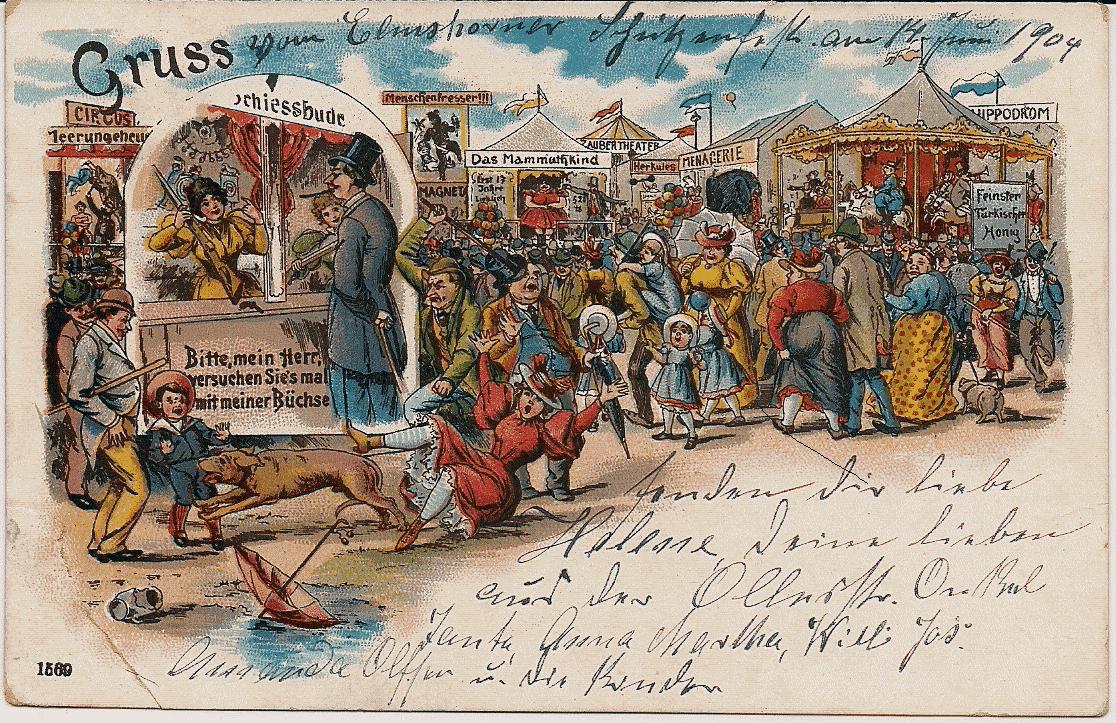 Gruss vom Elmshorner Schützenfest. am 14. Juni 1904
CIRCUS
Meerungeheuer
Schiessbude
Menschenfresser!!!
MAGNET
Das Mammuthkind
Erst 17
Jahre
ZAUBERTHEATER
Herkules
MENAGERIE
HIPPODROM
Feinster
Türkischer
Honig
Bitte, mein Herr,
versuchen Sie's mal
mit meiner Büchse
senden dir liebe
Helene, Deine lieben
aus der Ollerstr. Onkel
Tante, Anna Martha, Willi Jos.
Amanda Olffen u. die Kinder
1569